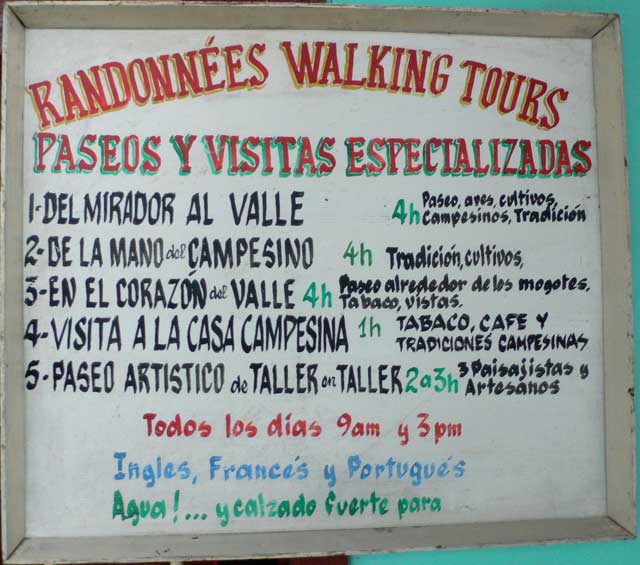 RANDONNÉES WALKING TOURS
PASEOS Y VISITAS ESPECIALIZADAS
1-DEL MIRADOR AL VALLE 4h Paseo, aves, cultivos, Campesinos, Tradición
2-DE LA MANO del CAMPESINO 4h Tradición, cultivos,
3-EN EL CORAZÓN del VALLE 4h Paseo alrededor de los mogotes, Tabaco, vistas.
4-VISITA A LA CASA CAMPESINA 1h TABACO, CAFE Y TRADICIONES CAMPESINAS
5-PASEO ARTISTICO de TALLER en TALLER 2a3h 3 Paisajistas y Artesanos
Todos los días 9am y 3pm
Ingles, Francés y Portugués
Agua!... y calzado fuerte para